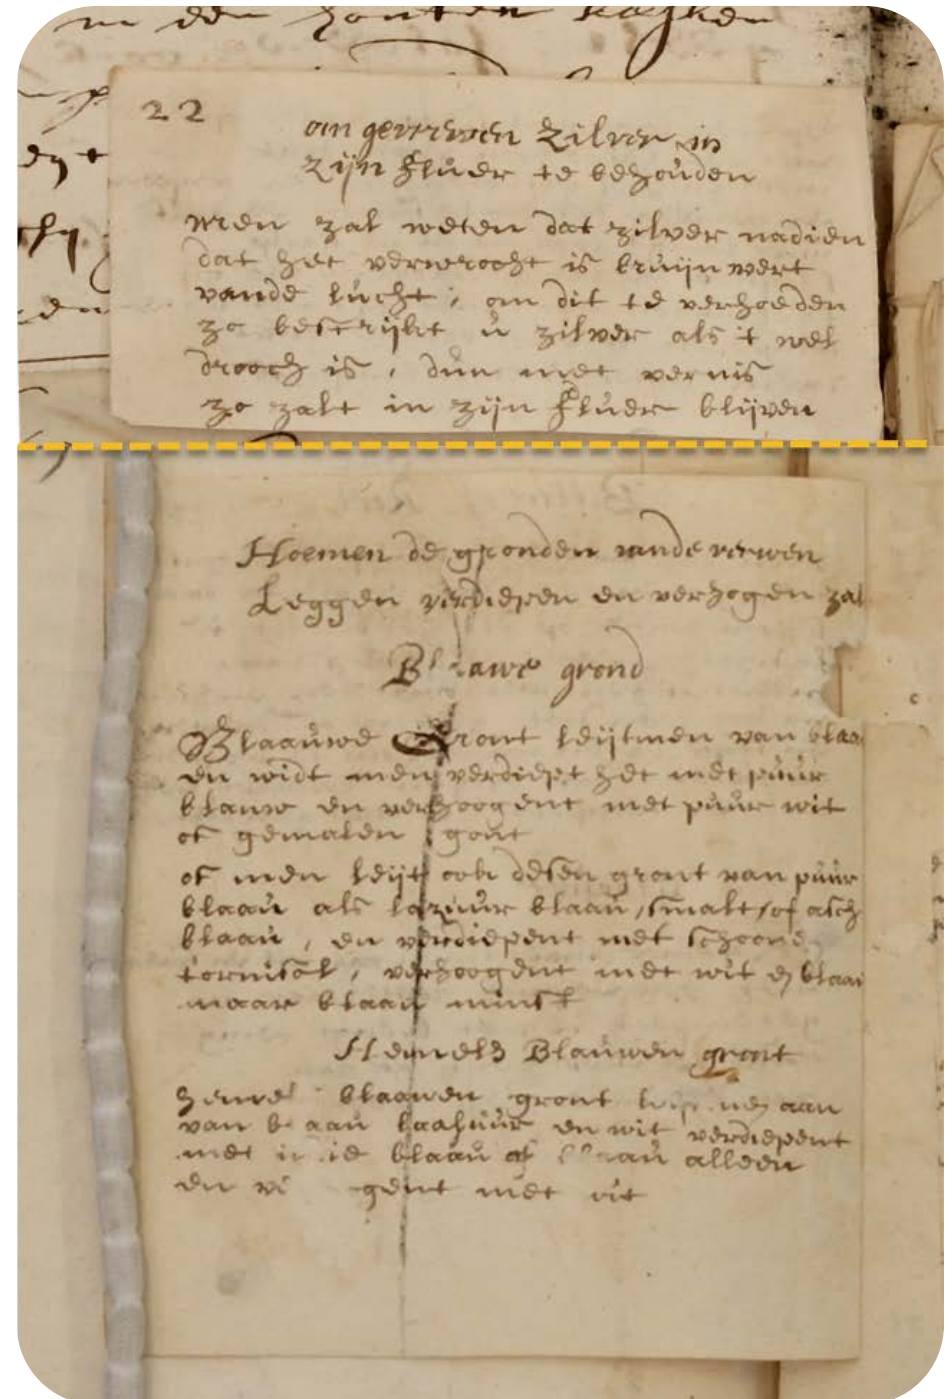 in den houten
22
om gevreven zilver in
zijn fluer te behouden
Men zal weten dat zilver nadien
dat het verwrocht is bruijn wert
vande lucht, om dit te verhoeden
zo bestrijkt u zilver als 't wel
drooch is, dun met vernis
zo zalt in zijn fluer blijven
Hoemen de gronden vande verwen
Leggen verdiepen en verhogen zal
grond
Blaauwe Gront leijtmen van blaa
en widt men verdiept het met puur
blauw en verhoogent met puur wit
of gemalen gout
of men leijt ook desen gront van puur
blaau als lazuur blaau, smalt, of asch
blaau, en verdiepent met schoone
tornisol, verhoogent met wit en blaau
maar blaau minst
Hemels Blauwen gront
blaauwen gront aan
van blaau laasuur en wit verdiepent
met blaau of blaau alleen
en met wit